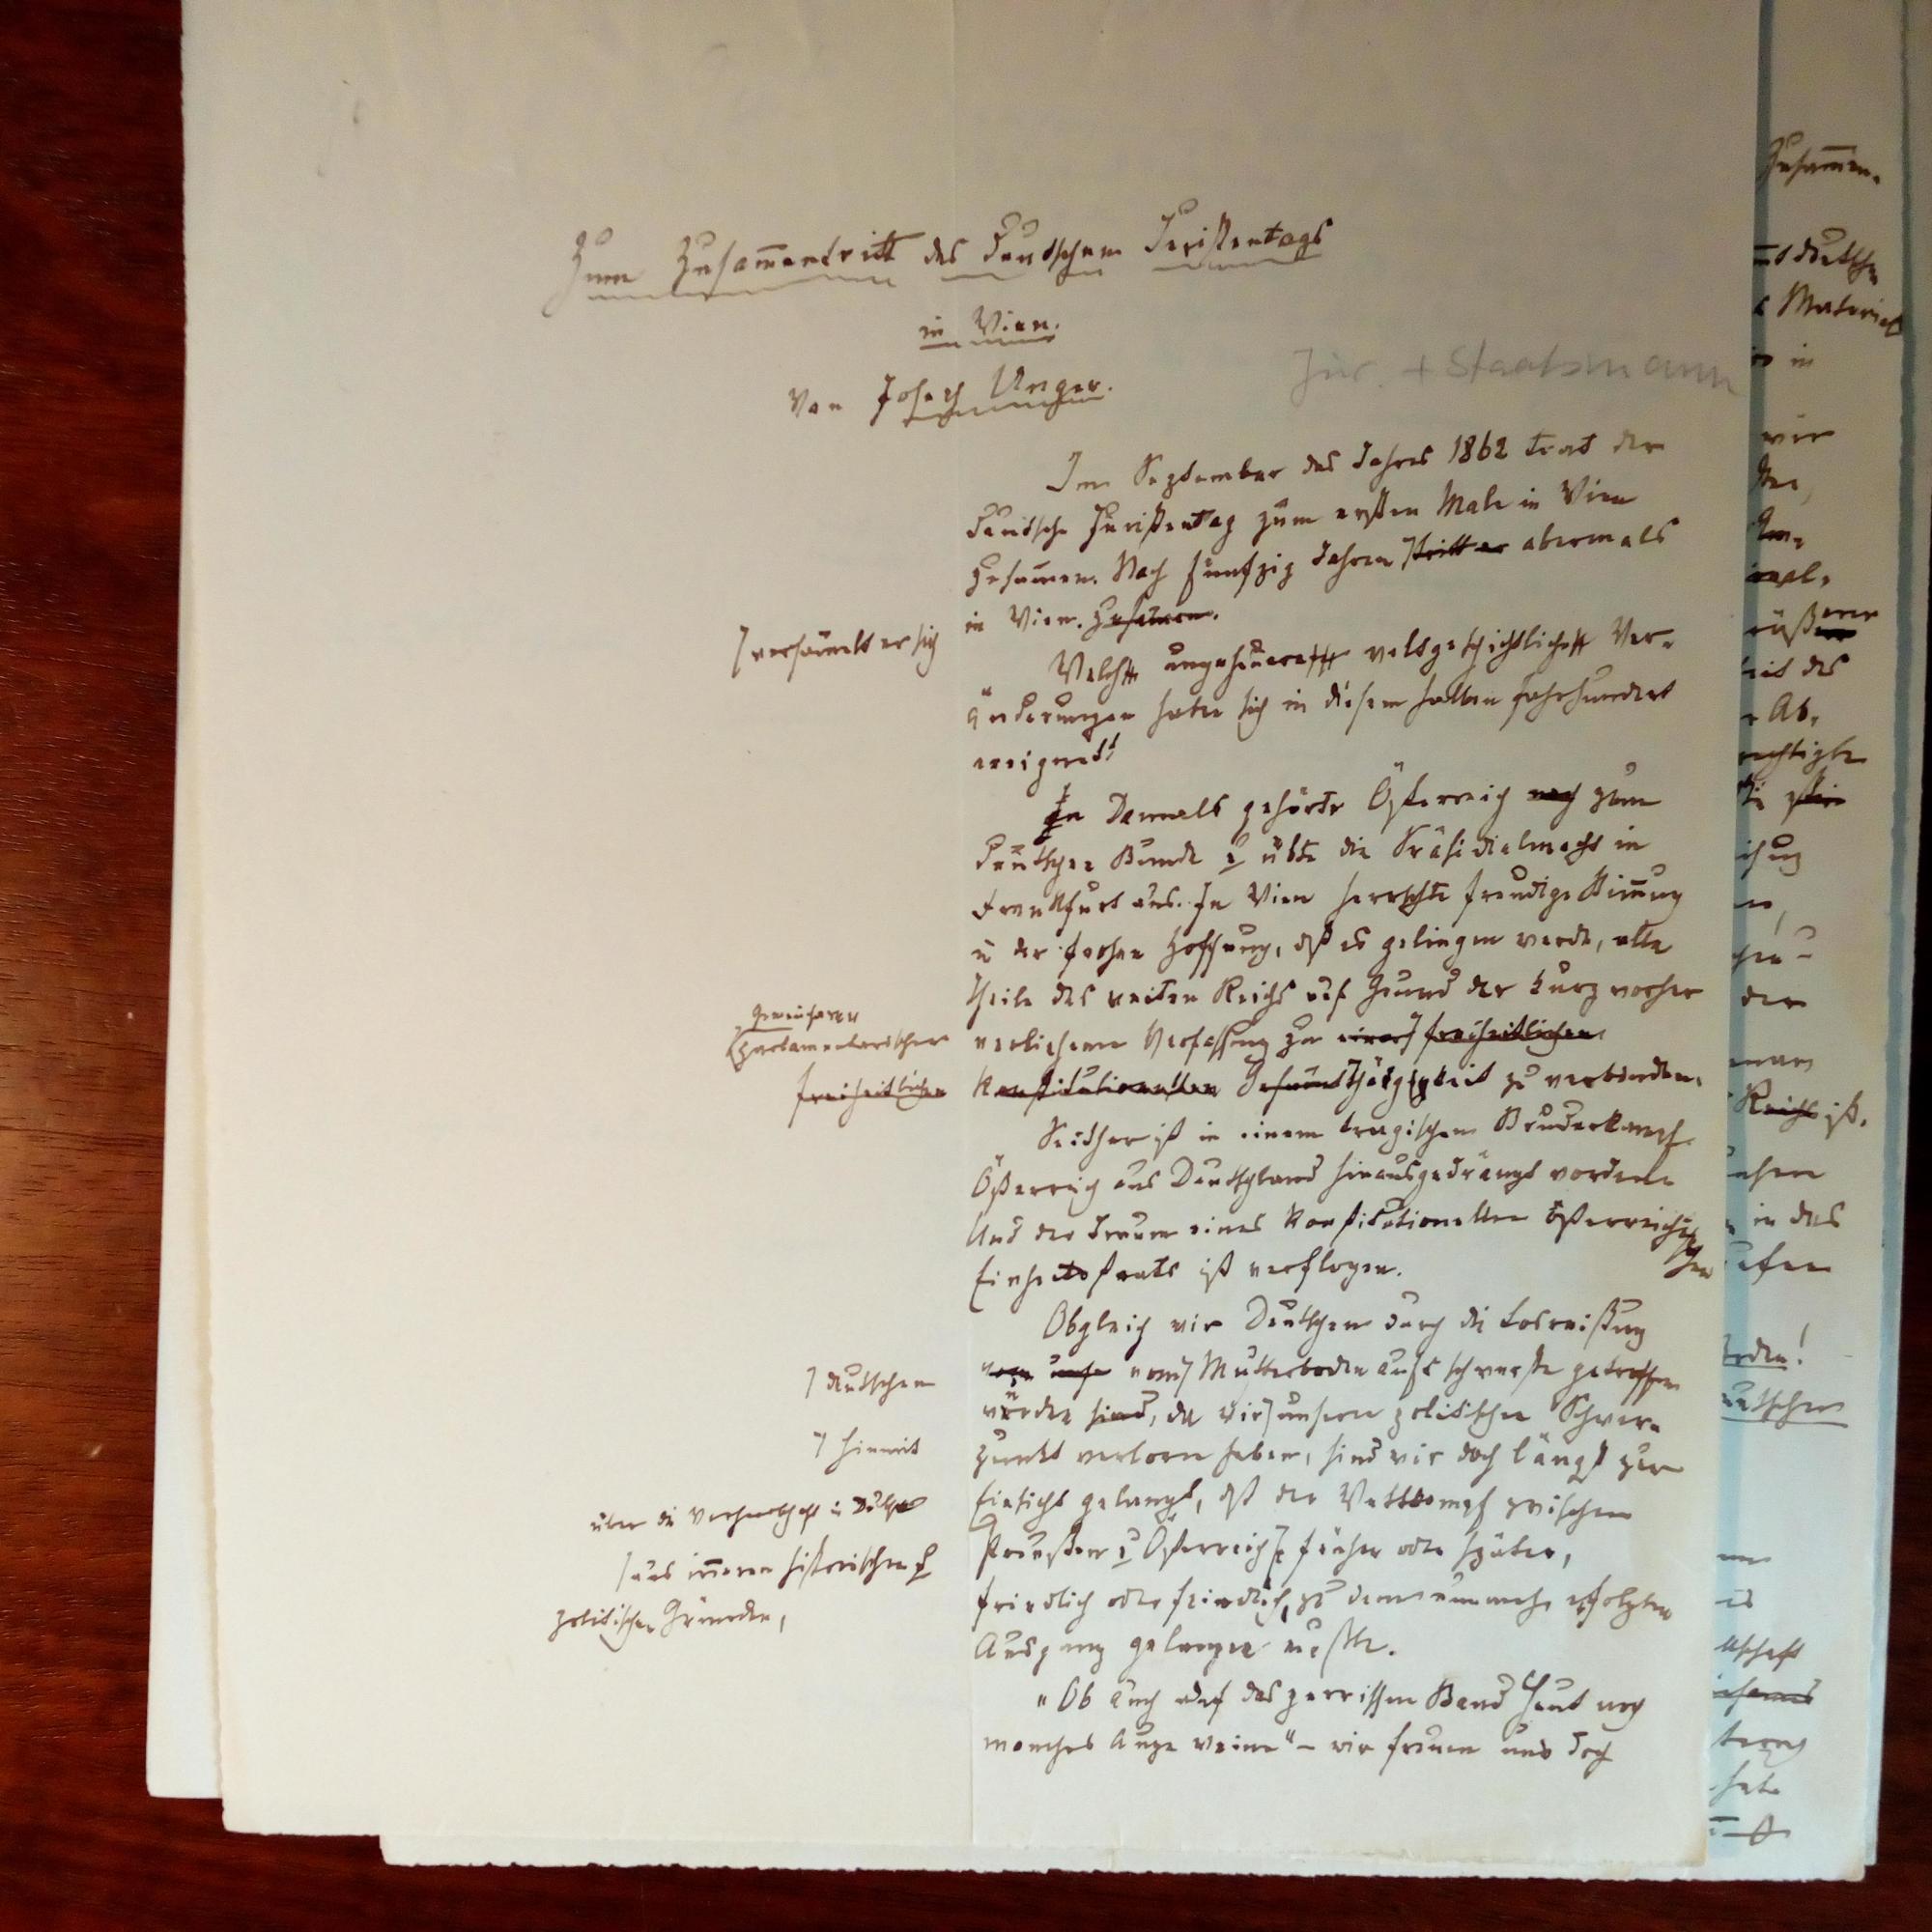 Zum Zusam̄entritt des Deutschen Juristentags
in Wien.
Von Joseph Unger.
Jur. + Staatsmann
Im September des Jahres 1862 trat der
Deutsche Juristentag zum ersten Male in Wien
zusam̄en. Nach fünfzig Jahren tritt er abermals
in Wien. zusam̄en.
versam̄elt er sich
Welch ungeheuere weltgeschichtliche Ver-
änderungen haben sich in diesem halben Jahrhundert
ereignet!
In Damals gehörte Österreich noch zum
Deutschen Bunde u übte die Präsidialmacht in
Frankfurt aus. In Wien herrschte freudige Stim̄ung
u der frohen Hoffnung, dß es gelingen werde, alle
Theile des weiten Reichs auf Grund der kurz vorher
verliehenen Verfassung zu einer freiheitlichen
gemeinsamen
parlamentarischen
freiheitlichen
konstitutionellen Gesam̄tthätigkeit zu verbinden.
Seither ist in einem tragischen Bruderkampf
Österreich aus Deutschland hinausgedrängt worden.
Und der Traum eines konstitutionellen österreichi
schen
Einheitsstaats ist verflogen.
Obgleich wir Deutschen durch die Losreißung
vom Mutterboden aufs schwerste getroffen
deutschen
wurden sind, da wir unsern politischen Schwer-
hiemit
punkt verloren haben, sind wir doch längst zur
Einsicht gelangt, dß der Wettkampf zwischen
über die Vorherrschaft in
Preußen u Österreich früher oder später,
aus in̄eren historischen u
politischen Gründen,
friedlich oder feindlich, zu dem nunmehr erfolgten
Ausgang gelangen mußte.
"Ob auch auf das zerrissen Band heut noch
manches Auge weine" – wir freuen uns doch